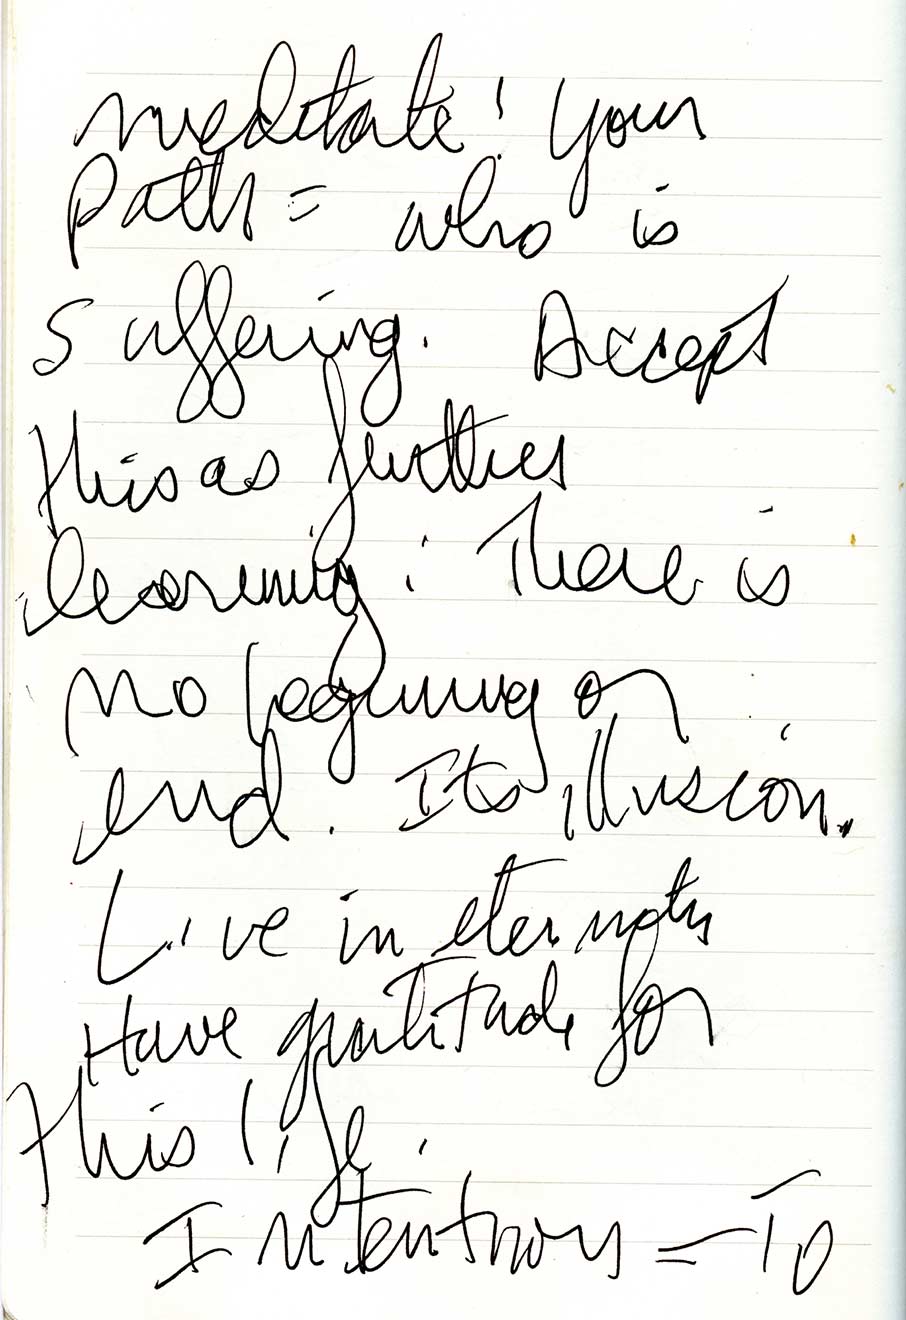 meditate! Your
Path = who is
suffering. Accept
this as further
learning: There is
no beginning or
end. Its illusion.
Live in eternity
Have gratitude for
this life.
Intentions = To